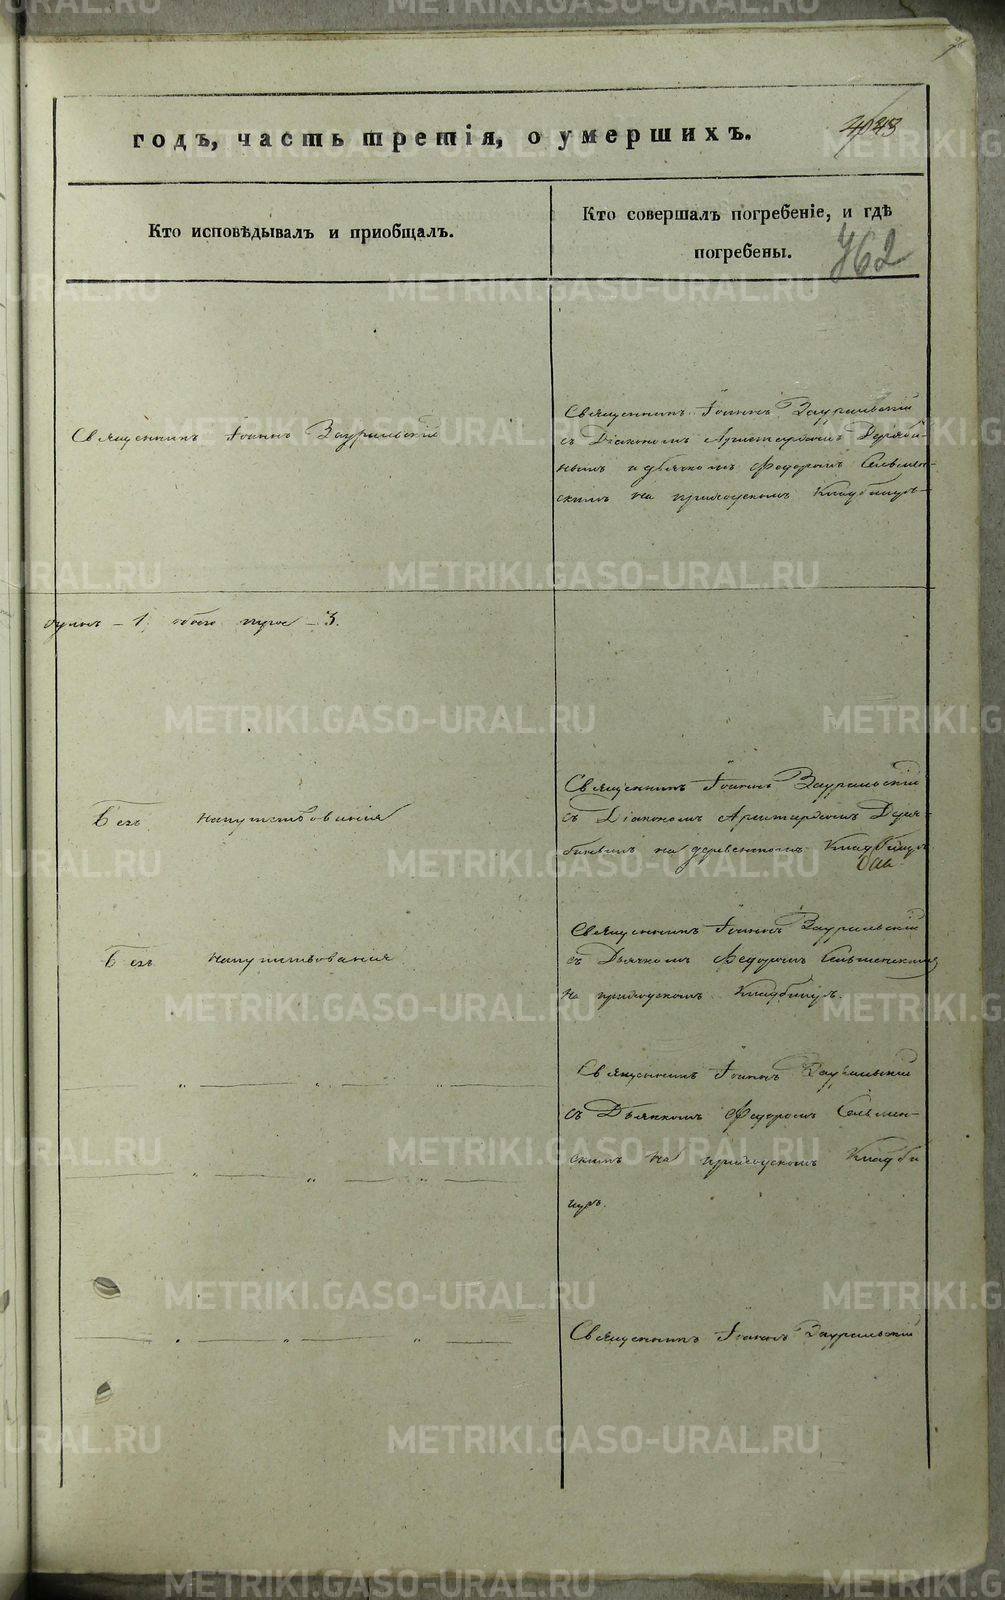 METRIKI.GASO-URAL.RU
годъ, часть третія, о умершихъ.
Кто исповѣдывалъ и приобщалъ.
Кто совершалъ погребеніе, и гдѣ
погребены.
762
Священникъ Іоаннъ Зауральскій
Священникъ Іоаннъ Зауральскій
съ Діакономъ Деряби-
нымъ и дьячкомъ Федоромъ Сельмен-
скимъ на приходскомъ кладбищѣ
1. обоего пола – 3.
Безъ напутствования
Священникъ Іоаннъ Зауральскій
съ Діакономъ Деря-
бинымъ на деревенскомъ кладбищѣ
Безъ напутствования
Священникъ Іоаннъ Зауральскій
съ Дьячкомъ Федоромъ Сельменскимъ
на приходскомъ кладбищѣ.
Священникъ Іоаннъ Зауральскій
съ Дьячкомъ Федоромъ Сельмен-
скимъ на приходскомъ кладби
щѣ.
Священникъ Іоаннъ Зауральскій